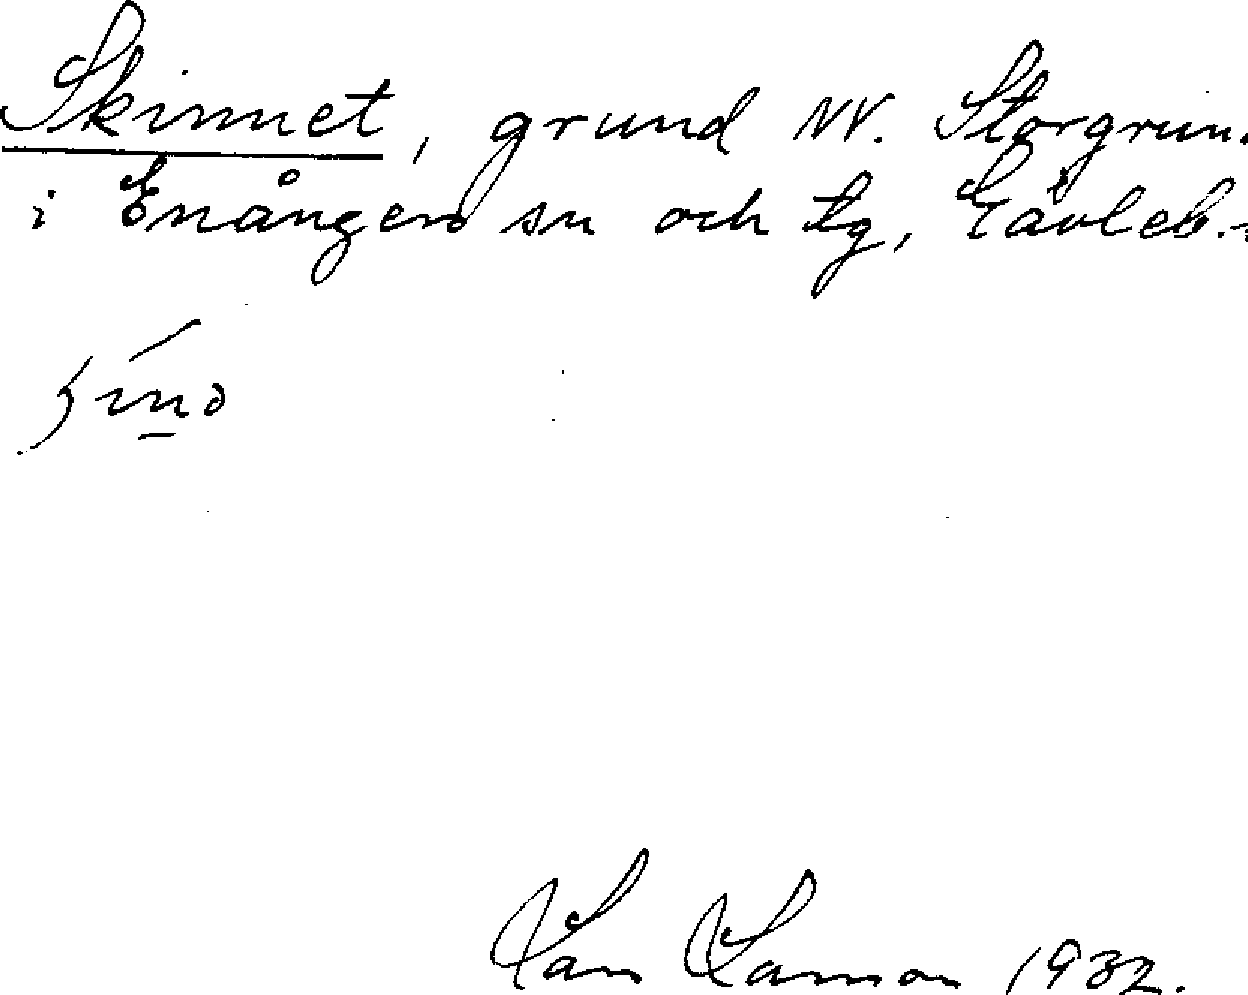 Skinnet, grund NV. Storgrun
i Enångers sn och tg, Gävleb.
Lars Larsson 1932.